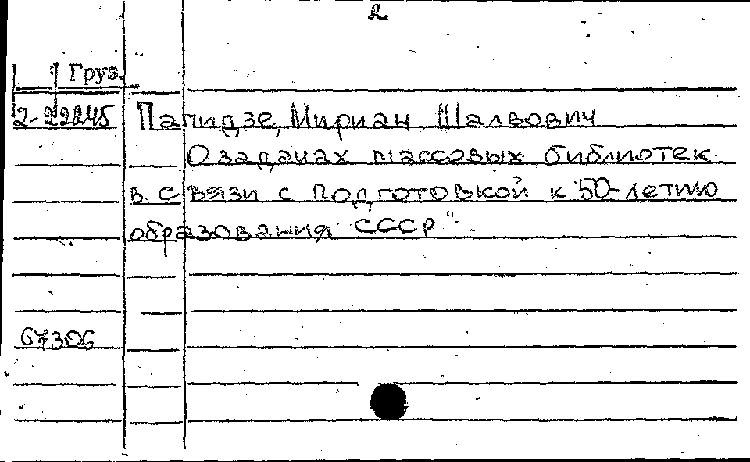 2
Груз.
2-22245 Папидзе, Мириан Шалвович
О задачах массовых библиотек
в связи с подготовкой к "50-летию
образования СССР".
67306